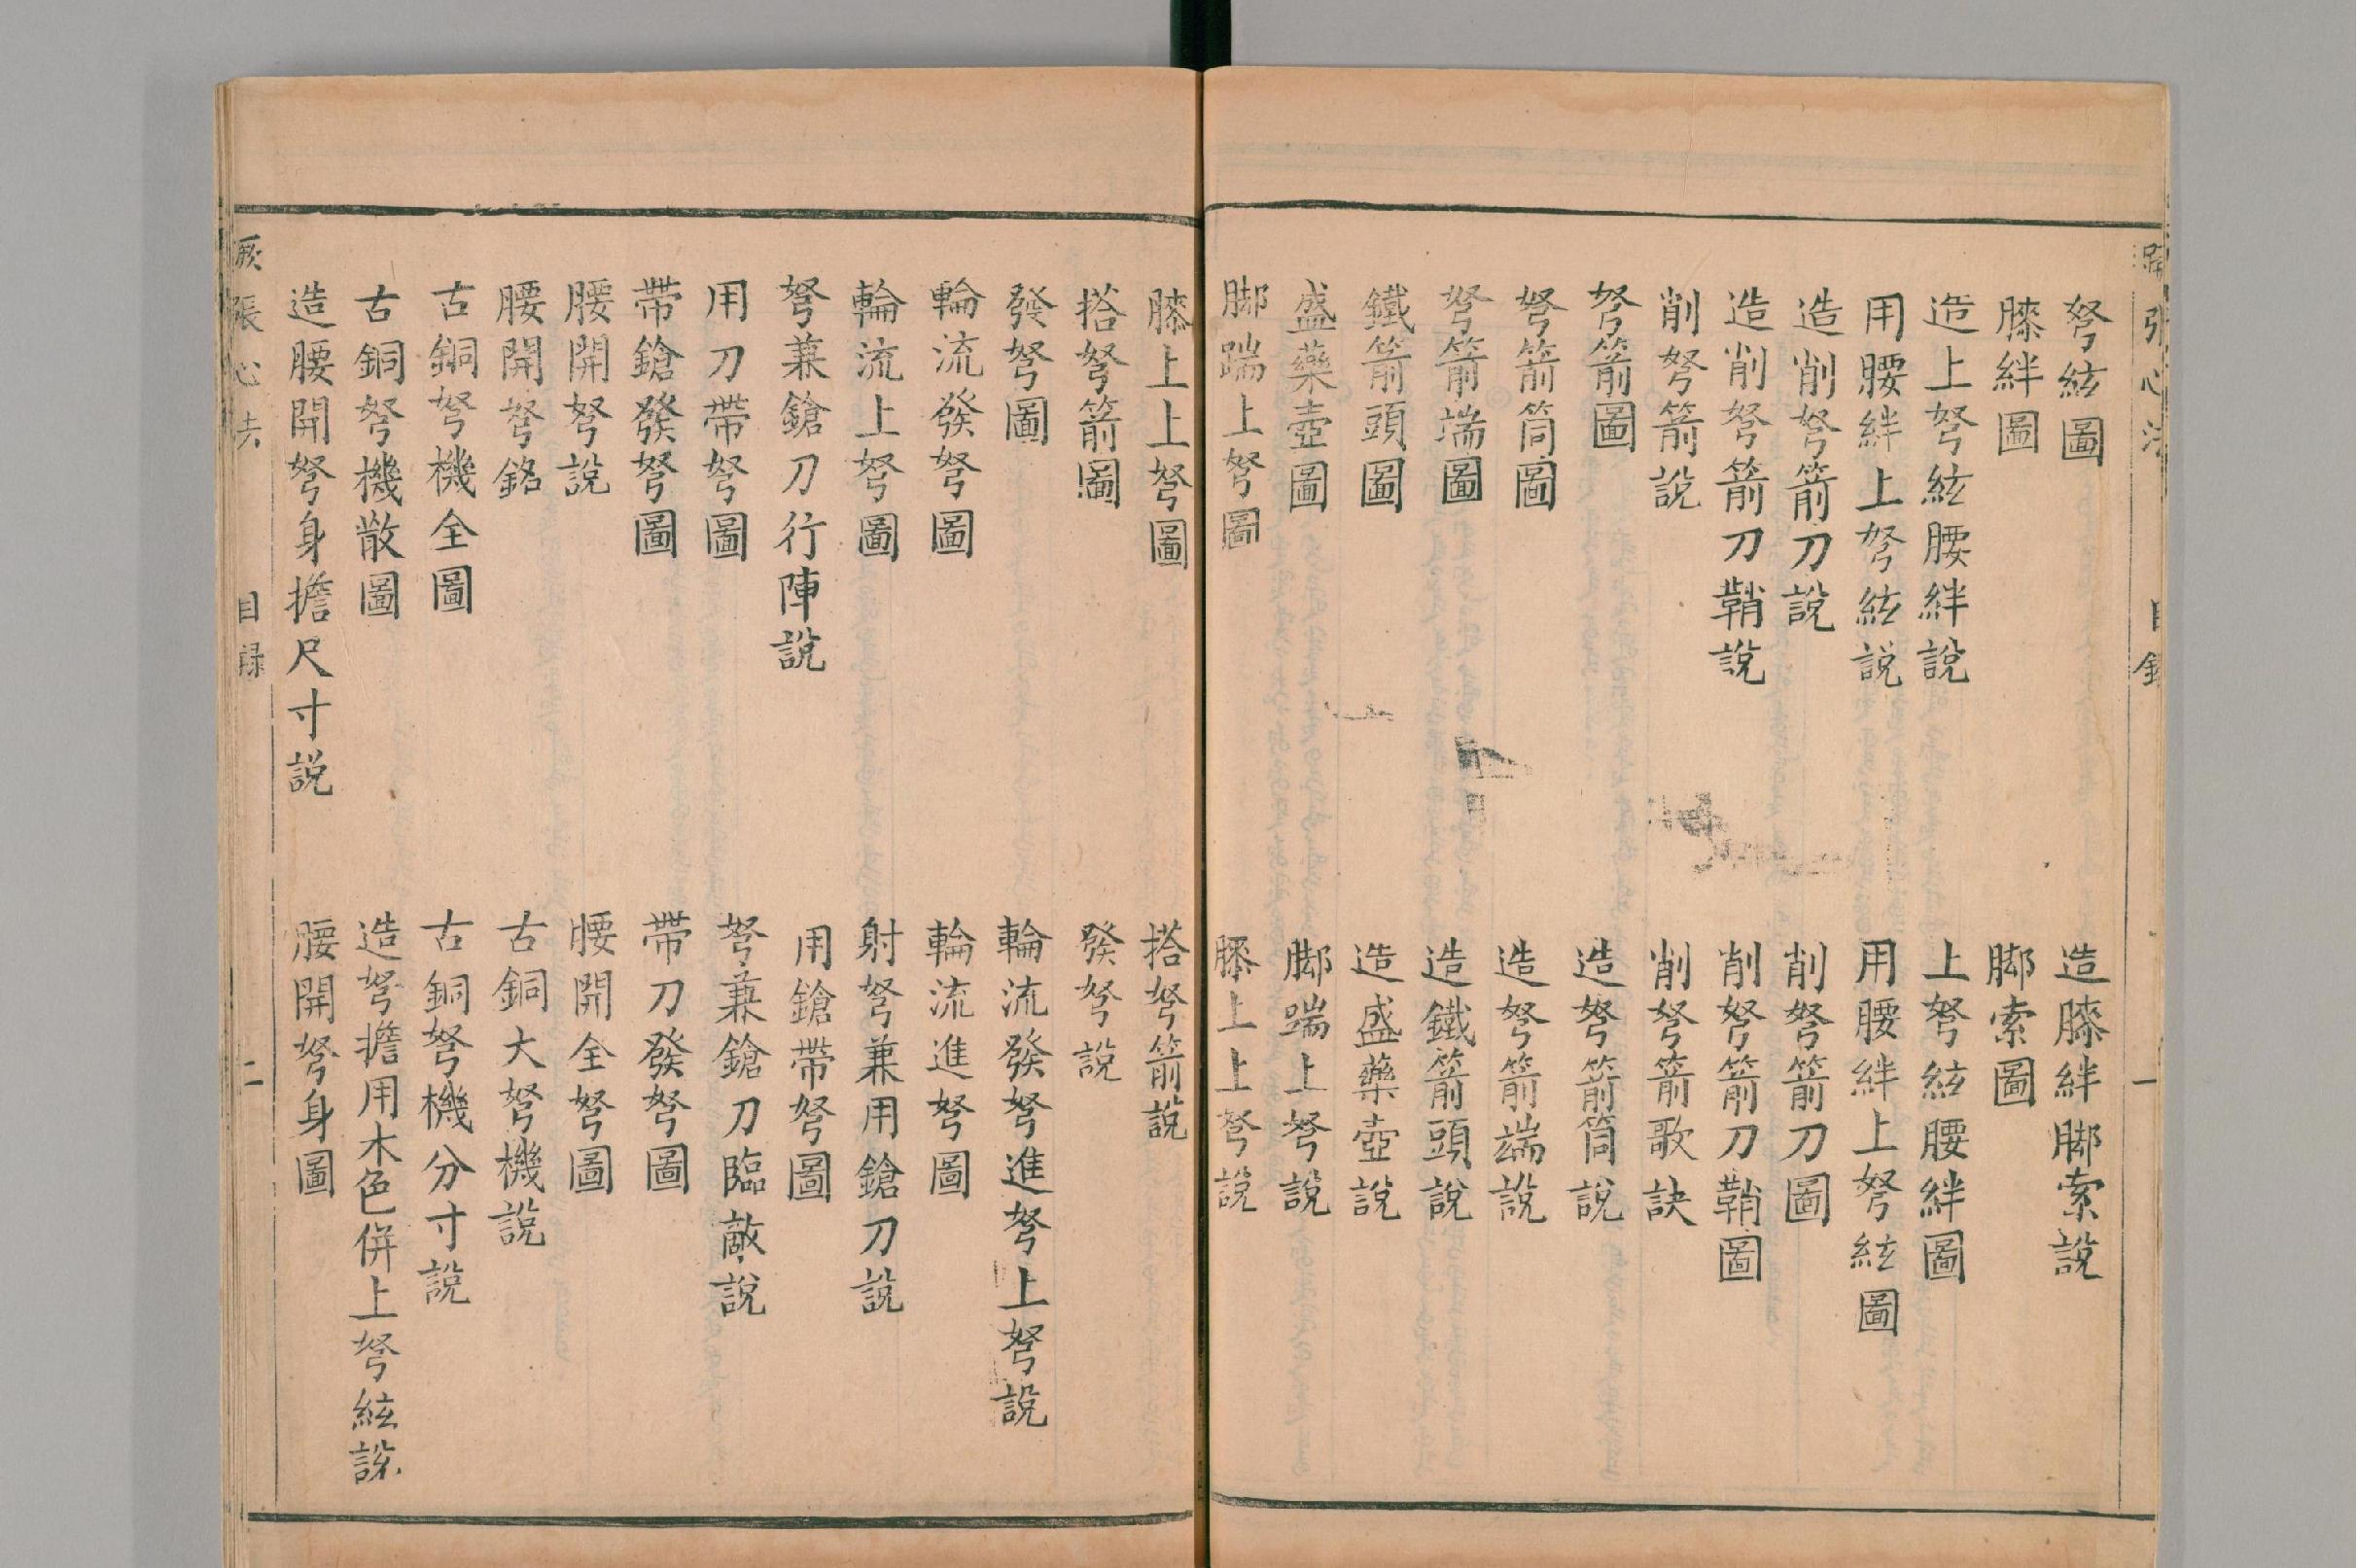 張心法 目錄 一
弩絃圖 造膝絆脚索說
膝絆圖 脚索圖
造上弩絃腰絆說 上弩絃腰絆圖
用腰絆上弩絃說 用腰絆上弩絃圖
造削弩箭刀說 削弩箭刀圖
造削弩箭刀鞘說 削弩箭刀鞘圖
削弩箭說 削弩箭歌訣
弩箭圖 造弩箭筒說
弩箭筒圖 造弩箭端說
弩箭端圖 造鐵箭頭說
鐵箭頭圖 造盛藥壺說
盛藥壺圖 脚踹上弩說
脚踹上弩圖 膝上上弩說
膝上上弩圖 搭弩箭說
搭弩箭圖 發弩說
發弩圖 輪流發弩進弩上弩說
輪流發弩圖 輪流進弩圖
輪流上弩圖 射弩兼用鎗刀說
弩兼鎗刀行陣說 用鎗帶弩圖
用刀帶弩圖 弩兼鎗刀臨敵說
帶鎗發弩圖 帶刀發弩圖
腰開弩說 腰開全弩圖
腰開弩銘 古銅大弩機說
古銅弩機全圖 古銅弩機分寸說
古銅弩機散圖 造弩擔用木色併上弩絃說
造腰開弩身擔尺寸說 腰開弩身圖
蹶張心法 目錄 二